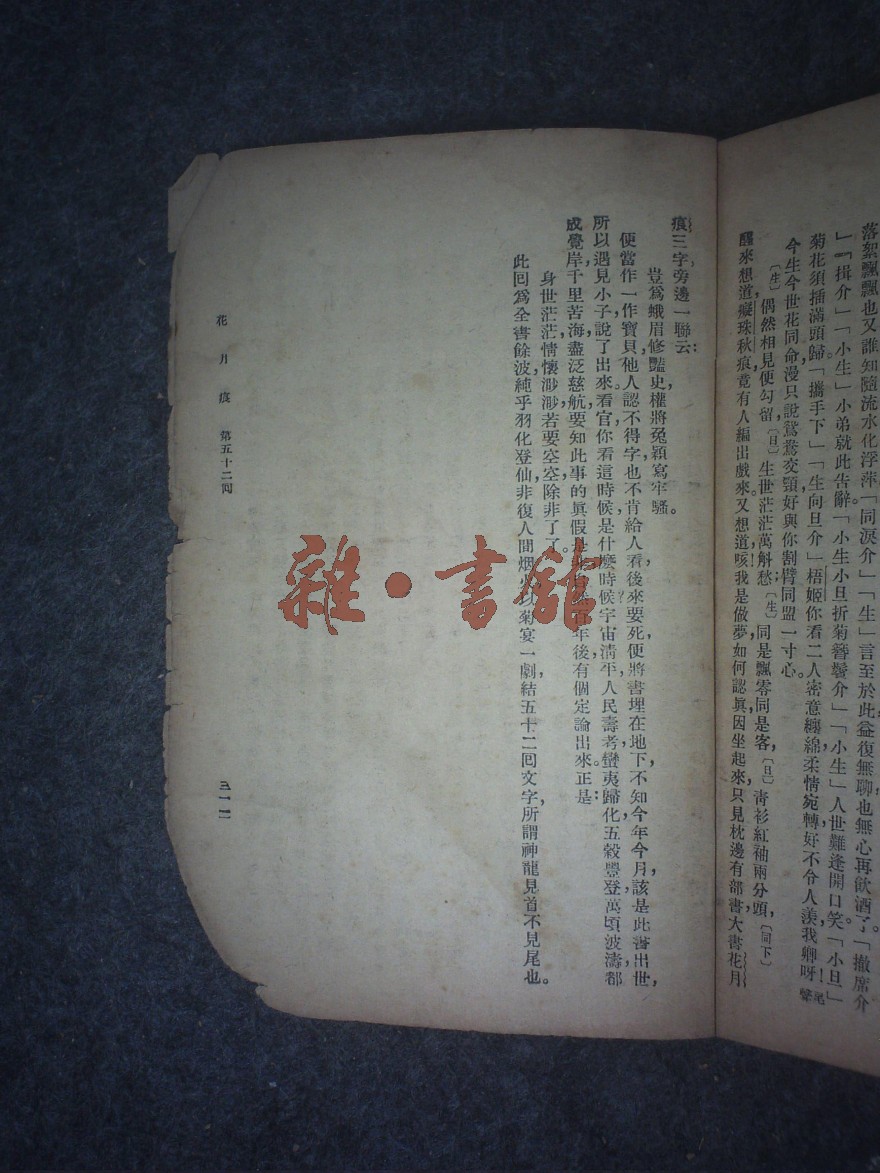 落絮飄飄也又誰知隨流水化浮萍。「同淚介」「生」言至於此益復無聊也無心再飲酒了。「撤席介
」「揖介」「小生」小弟就此告辭「小生小旦折菊簪鬢介」「小生」人世難逢開口笑。「小旦」
菊花須插滿頭歸「攜手下」「生向旦介」梧姬你看二人密意纏綿柔情宛轉好不令人羨我卿呀！尾聲
今生今世花同命漫只說鴛鴦交頸好與你割臂同盟一寸心。
〔生〕偶然相見便勾留〔旦〕生世茫茫萬斛愁〔生〕同是飄零同是客，〔旦〕青衫紅袖兩分頭，〔同下〕
醒來想道癡珠秋痕竟有人編出戲來，又想道咳！我是做夢如何認眞因坐起來，只見枕邊有部書大書花月
痕三字，旁邊一聯云：
豈爲蛾眉修豔史，權將兔穎寫牢騷。
便當作一作寶貝，他人認不得字也不肯給人看，後來要死，便將書埋在地下，不知今年今月，該是此書出世，
所以遇見小子說了出來。看官你看這時候是什麼時候？宇宙清平，人民壽考，蠻夷歸化，五穀豐登，萬頃波濤，都
成覺岸，千里苦海，盡泛慈航，要知此事的眞假，是年後，有個定論出來。正是：
身世茫茫，情懷渺渺，若要空空，除非了了。
此回爲全書餘波，純乎羽化登仙，非復人間烟火，以菊宴一劇，結五十二回文字，所謂神龍見首不見尾也。
花月痕 第五十二回
三一一
雜·書館